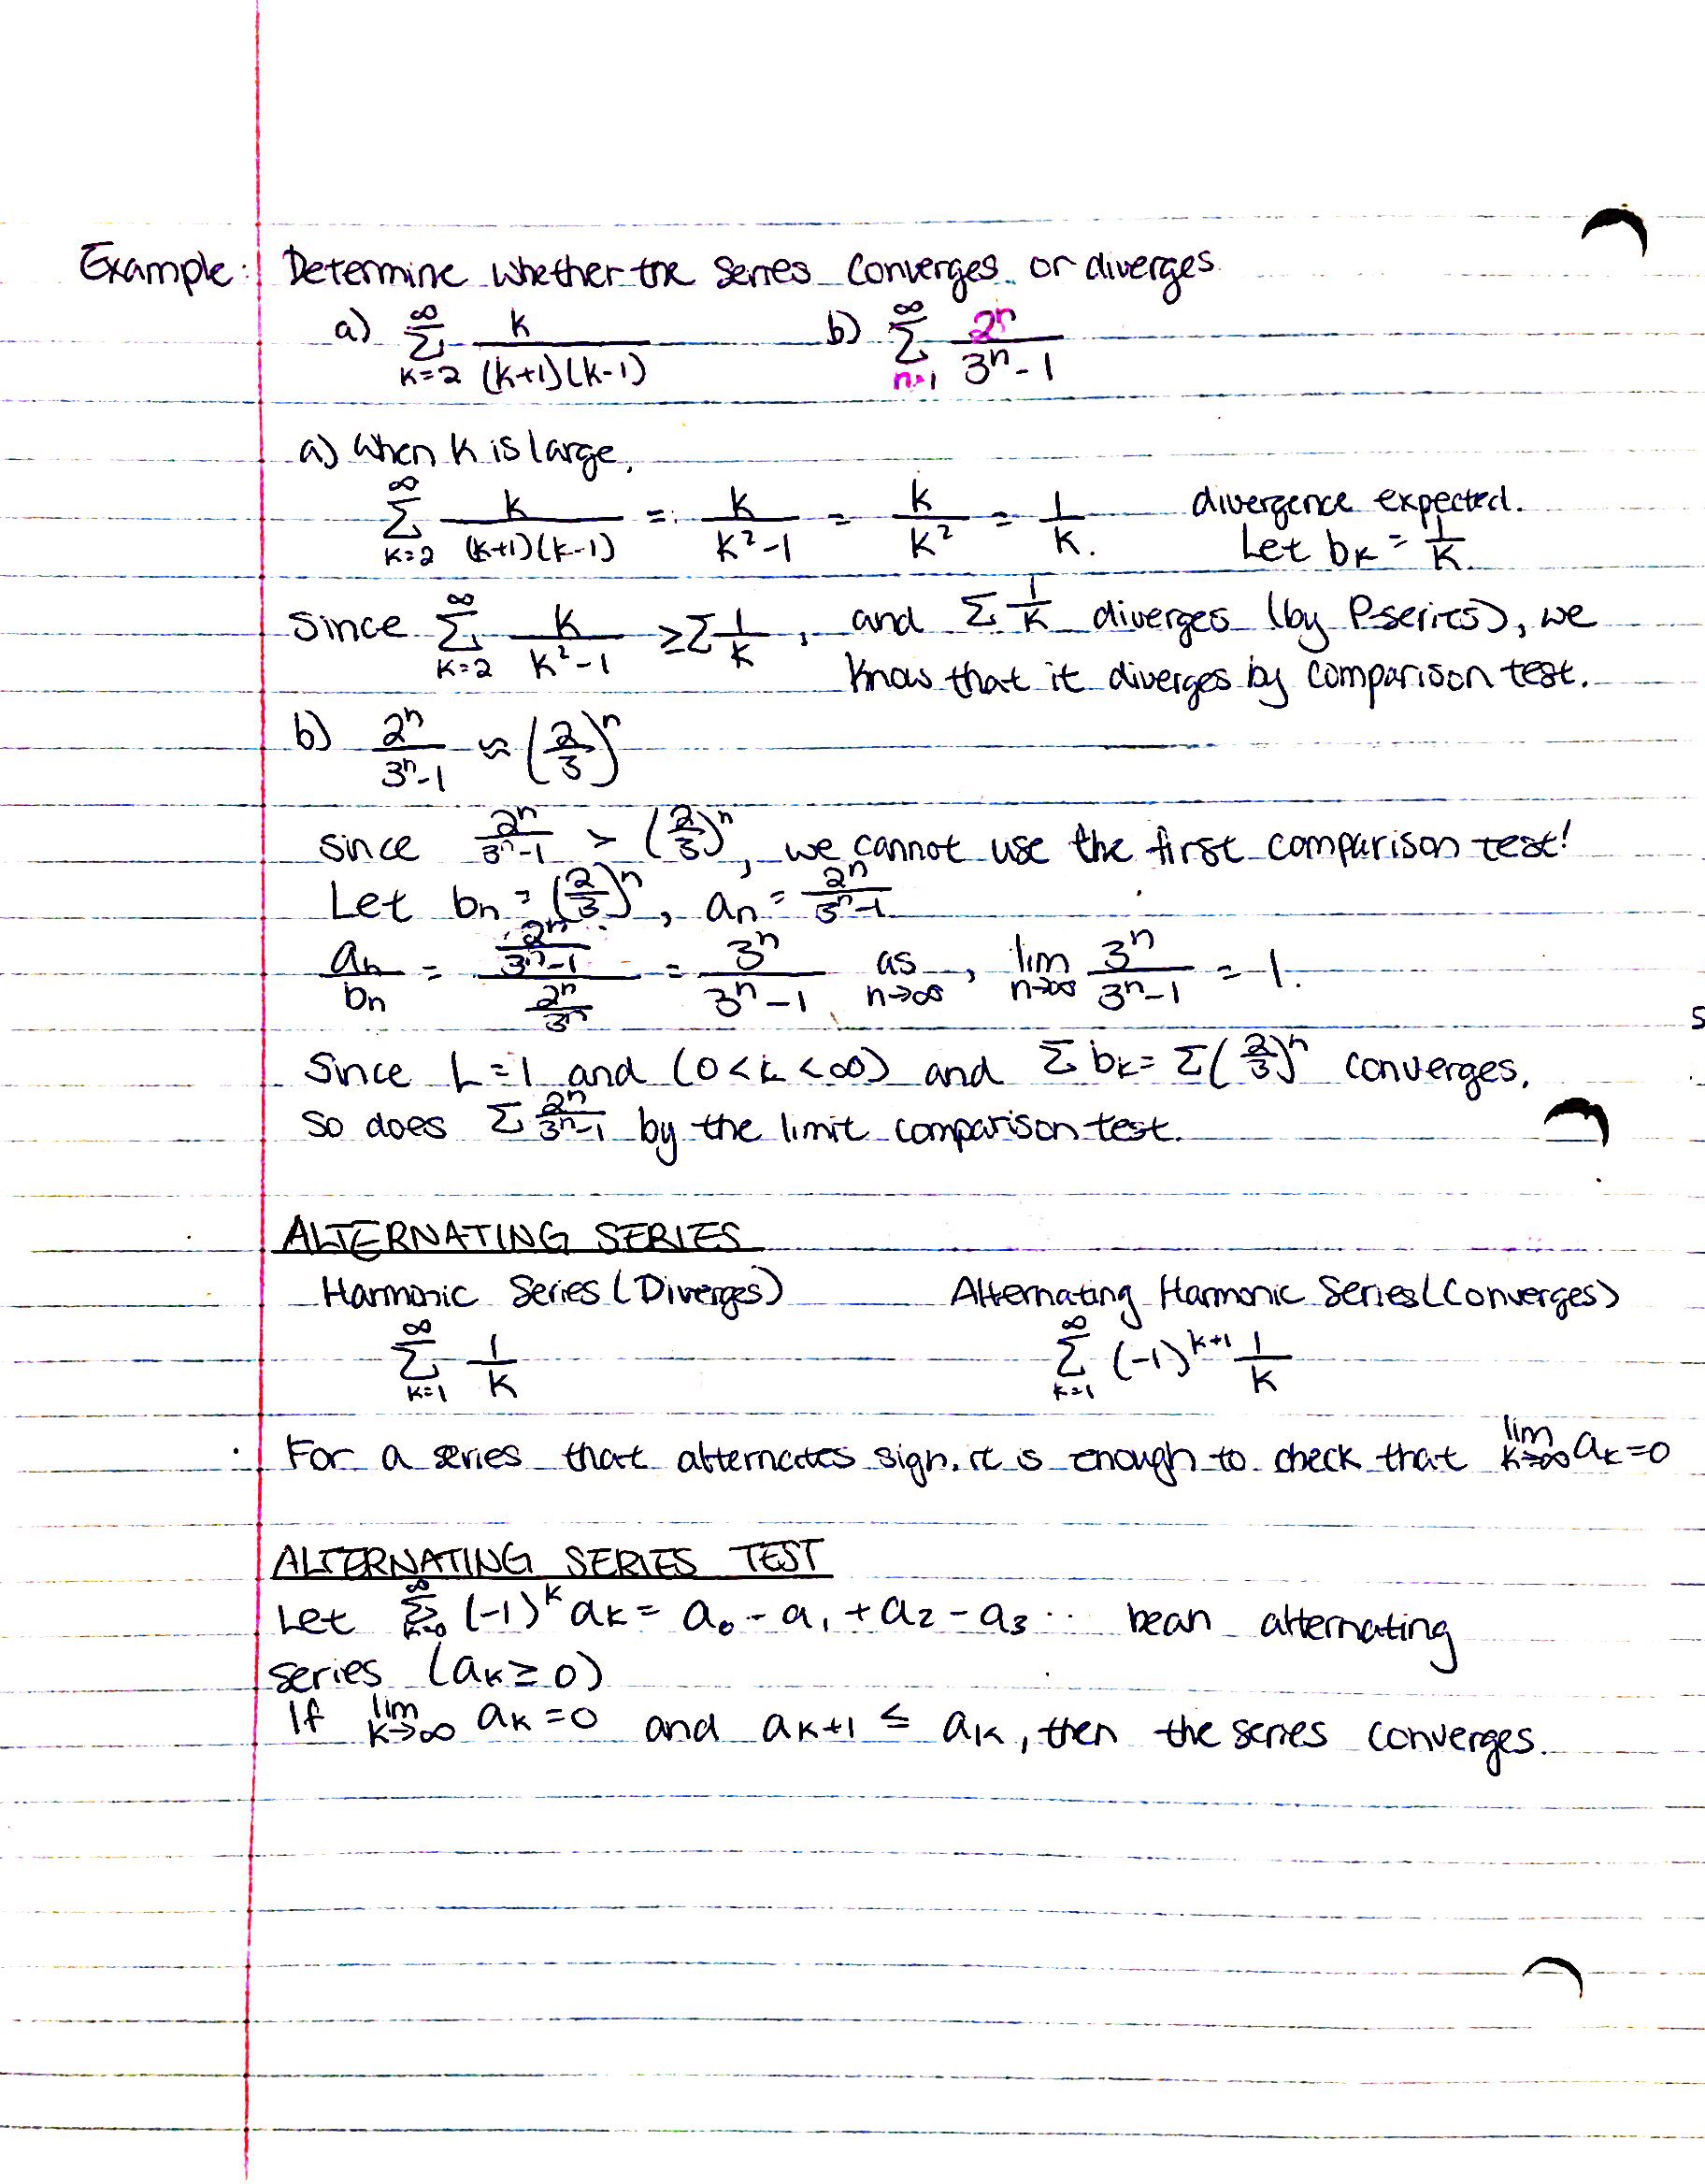 Example: Determine whether the series converges or diverges
a) ∞ Σ k=2 k/((k+1)(k-1)) b) ∞ Σ n=1 2ⁿ/(3ⁿ-1)
a) When k is large,
∞ Σ k=2 k/((k+1)(k-1)) = k/(k²-1) = k/k² = 1/k. divergence expected.
Let bₖ = 1/k.
Since ∞ Σ k=2 k/(k²-1) ≥ Σ 1/k, and Σ 1/k diverges (by P-series), we
know that it diverges by comparison test.
b) 2ⁿ/(3ⁿ-1) ≈ (2/3)ⁿ
since 2ⁿ/(3ⁿ-1) > (2/3)ⁿ, we cannot use the first comparison test!
Let bₙ = (2/3)ⁿ, aₙ = 2ⁿ/(3ⁿ-1)
aₙ/bₙ = (2ⁿ/(3ⁿ-1))/(2ⁿ/3ⁿ) = 3ⁿ/(3ⁿ-1) as n→∞, lim n→∞ 3ⁿ/(3ⁿ-1) = 1.
Since L=1 and (0<L<∞) and Σ bₖ = Σ(2/3)ⁿ converges,
so does Σ 2ⁿ/(3ⁿ-1) by the limit comparison test.
ALTERNATING SERIES
Harmonic Series (Diverges) Alternating Harmonic Series (Converges)
∞ Σ k=1 1/k ∞ Σ k=1 (-1)ᵏ⁺¹ 1/k
For a series that alternates sign, it is enough to check that lim k→∞ aₖ=0
ALTERNATING SERIES TEST
Let ∞ Σ k=0 (-1)ᵏ aₖ = a₀ - a₁ + a₂ - a₃ ... be an alternating
series (aₖ ≥ 0)
If lim k→∞ aₖ = 0 and aₖ₊₁ ≤ aₖ, then the series converges.